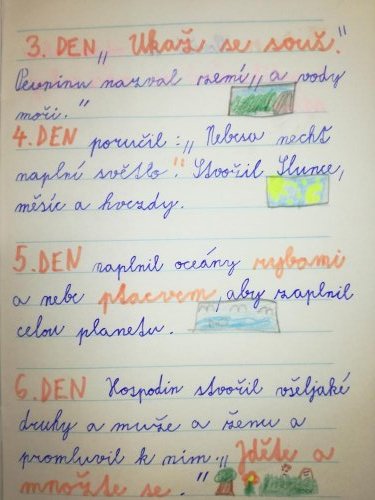 3. DEN „ Ukaž se souš."
Pevninu nazval zemí „ a vody
moři."
4. DEN poručil : „ Nebesa nechť
naplní světlo". Stvořil Slunce,
měsíc a hvezdy.
5. DEN naplnil oceány rybami
a nebe ptactvem, aby zaplnil
celou planetu.
6. DEN Hospodin stvořil všeljaké
druhy a muže a ženu a
promluvil k nim „ Jděte a
množte se."